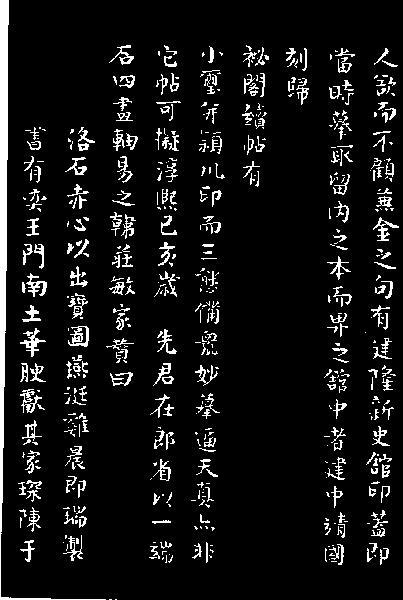 人欲而不顧兼金之句有建隆新史館印蓋即
當時摹取留内之本而畀之館中者建中靖國
刻歸
祕閣續帖有
小璽并潁川印而三態備麗妙摹逼天真亦非
它帖可擬淳熙己亥歲 先君在郎省以一端
石四畫軸易之韓莊敏家贊曰
洛石赤心以出寶圖燕涎雞晨即瑞製
書有奕王門南土華腴獻其家琛陳于